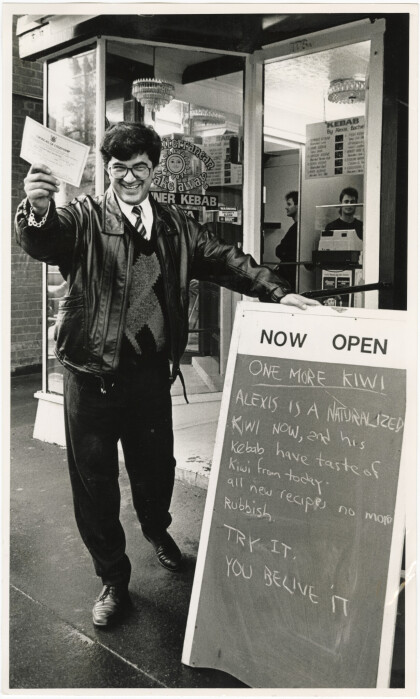 KEBAB
NER KEBAB
NOW OPEN
ONE MORE KIWI
ALEXIS IS A NATURALIZED
KIWI NOW, and his
Kebab have taste of
Kiwi from today.
all new recipes no more
Rubbish.
TRY IT.
YOU BELIVE IT